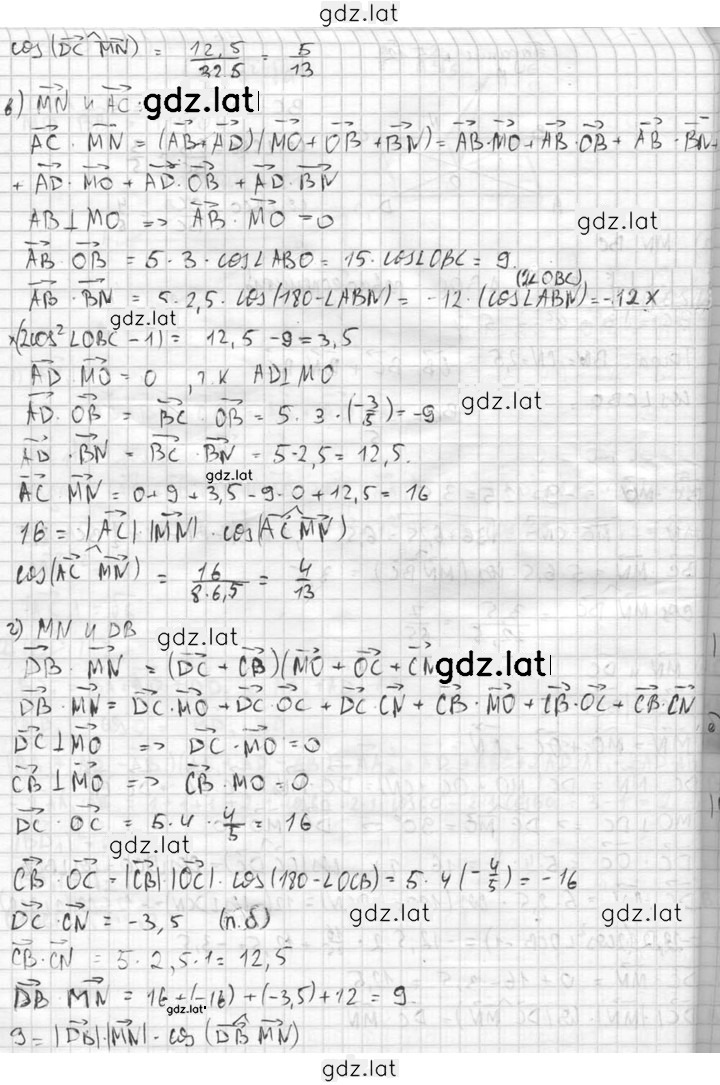 gdz.lat
cos(DC^MN) = 12,5/32.5 = 5/13
в) MN и AC gdz.lat
AC · MN = (AB+AD)(MO + OB + BN) = AB·MO + AB·OB + AB·BN +
+ AD·MO + AD·OB + AD·BN
AB⊥MO => AB·MO = 0 gdz.lat
AB·OB = 5·3·cos∠ABO = 15·cos∠OBC = 9
(2∠OBC)
AB·BN = 5·2,5·cos(180-∠ABN) = -12·(cos∠ABN) = -12 x
gdz.lat
x(2cos²∠OBC - 1) = 12,5 - 9 = 3,5
AD·MO = 0 , т.к AD⊥MO
gdz.lat
AD·OB = BC·OB = 5·3·(-3/5) = -9
AD·BN = BC·BN = 5·2,5 = 12,5.
gdz.lat
AC MN = 0 + 9 + 3,5 - 9·0 + 12,5 = 16
16 = |AC|·|MN|·cos(AC^MN)
cos(AC^MN) = 16/8·6,5 = 4/13
gdz.lat
г) MN и DB gdz.lat
DB·MN = (DC + CB)(MO + OC + CN gdz.lat
DB·MN = DC·MO + DC·OC + DC·CN + CB·MO + CB·OC + CB·CN
DC⊥MO => DC·MO = 0
CB⊥MO => CB·MO = 0
DC·OC = 5·4·4/5 = 16
gdz.lat
CB·OC = |CB|·|OC|·cos(180-∠OCB) = 5·4(-4/5) = -16
DC·CN = -3,5 (п.б) gdz.lat gdz.lat
CB·CN = 5·2,5·1 = 12,5
DB·MN = 16 + (-16) + (-3,5) + 12 = 9
gdz.lat
9 = |DB|·|MN|·cos(DB^MN)
gdz.lat